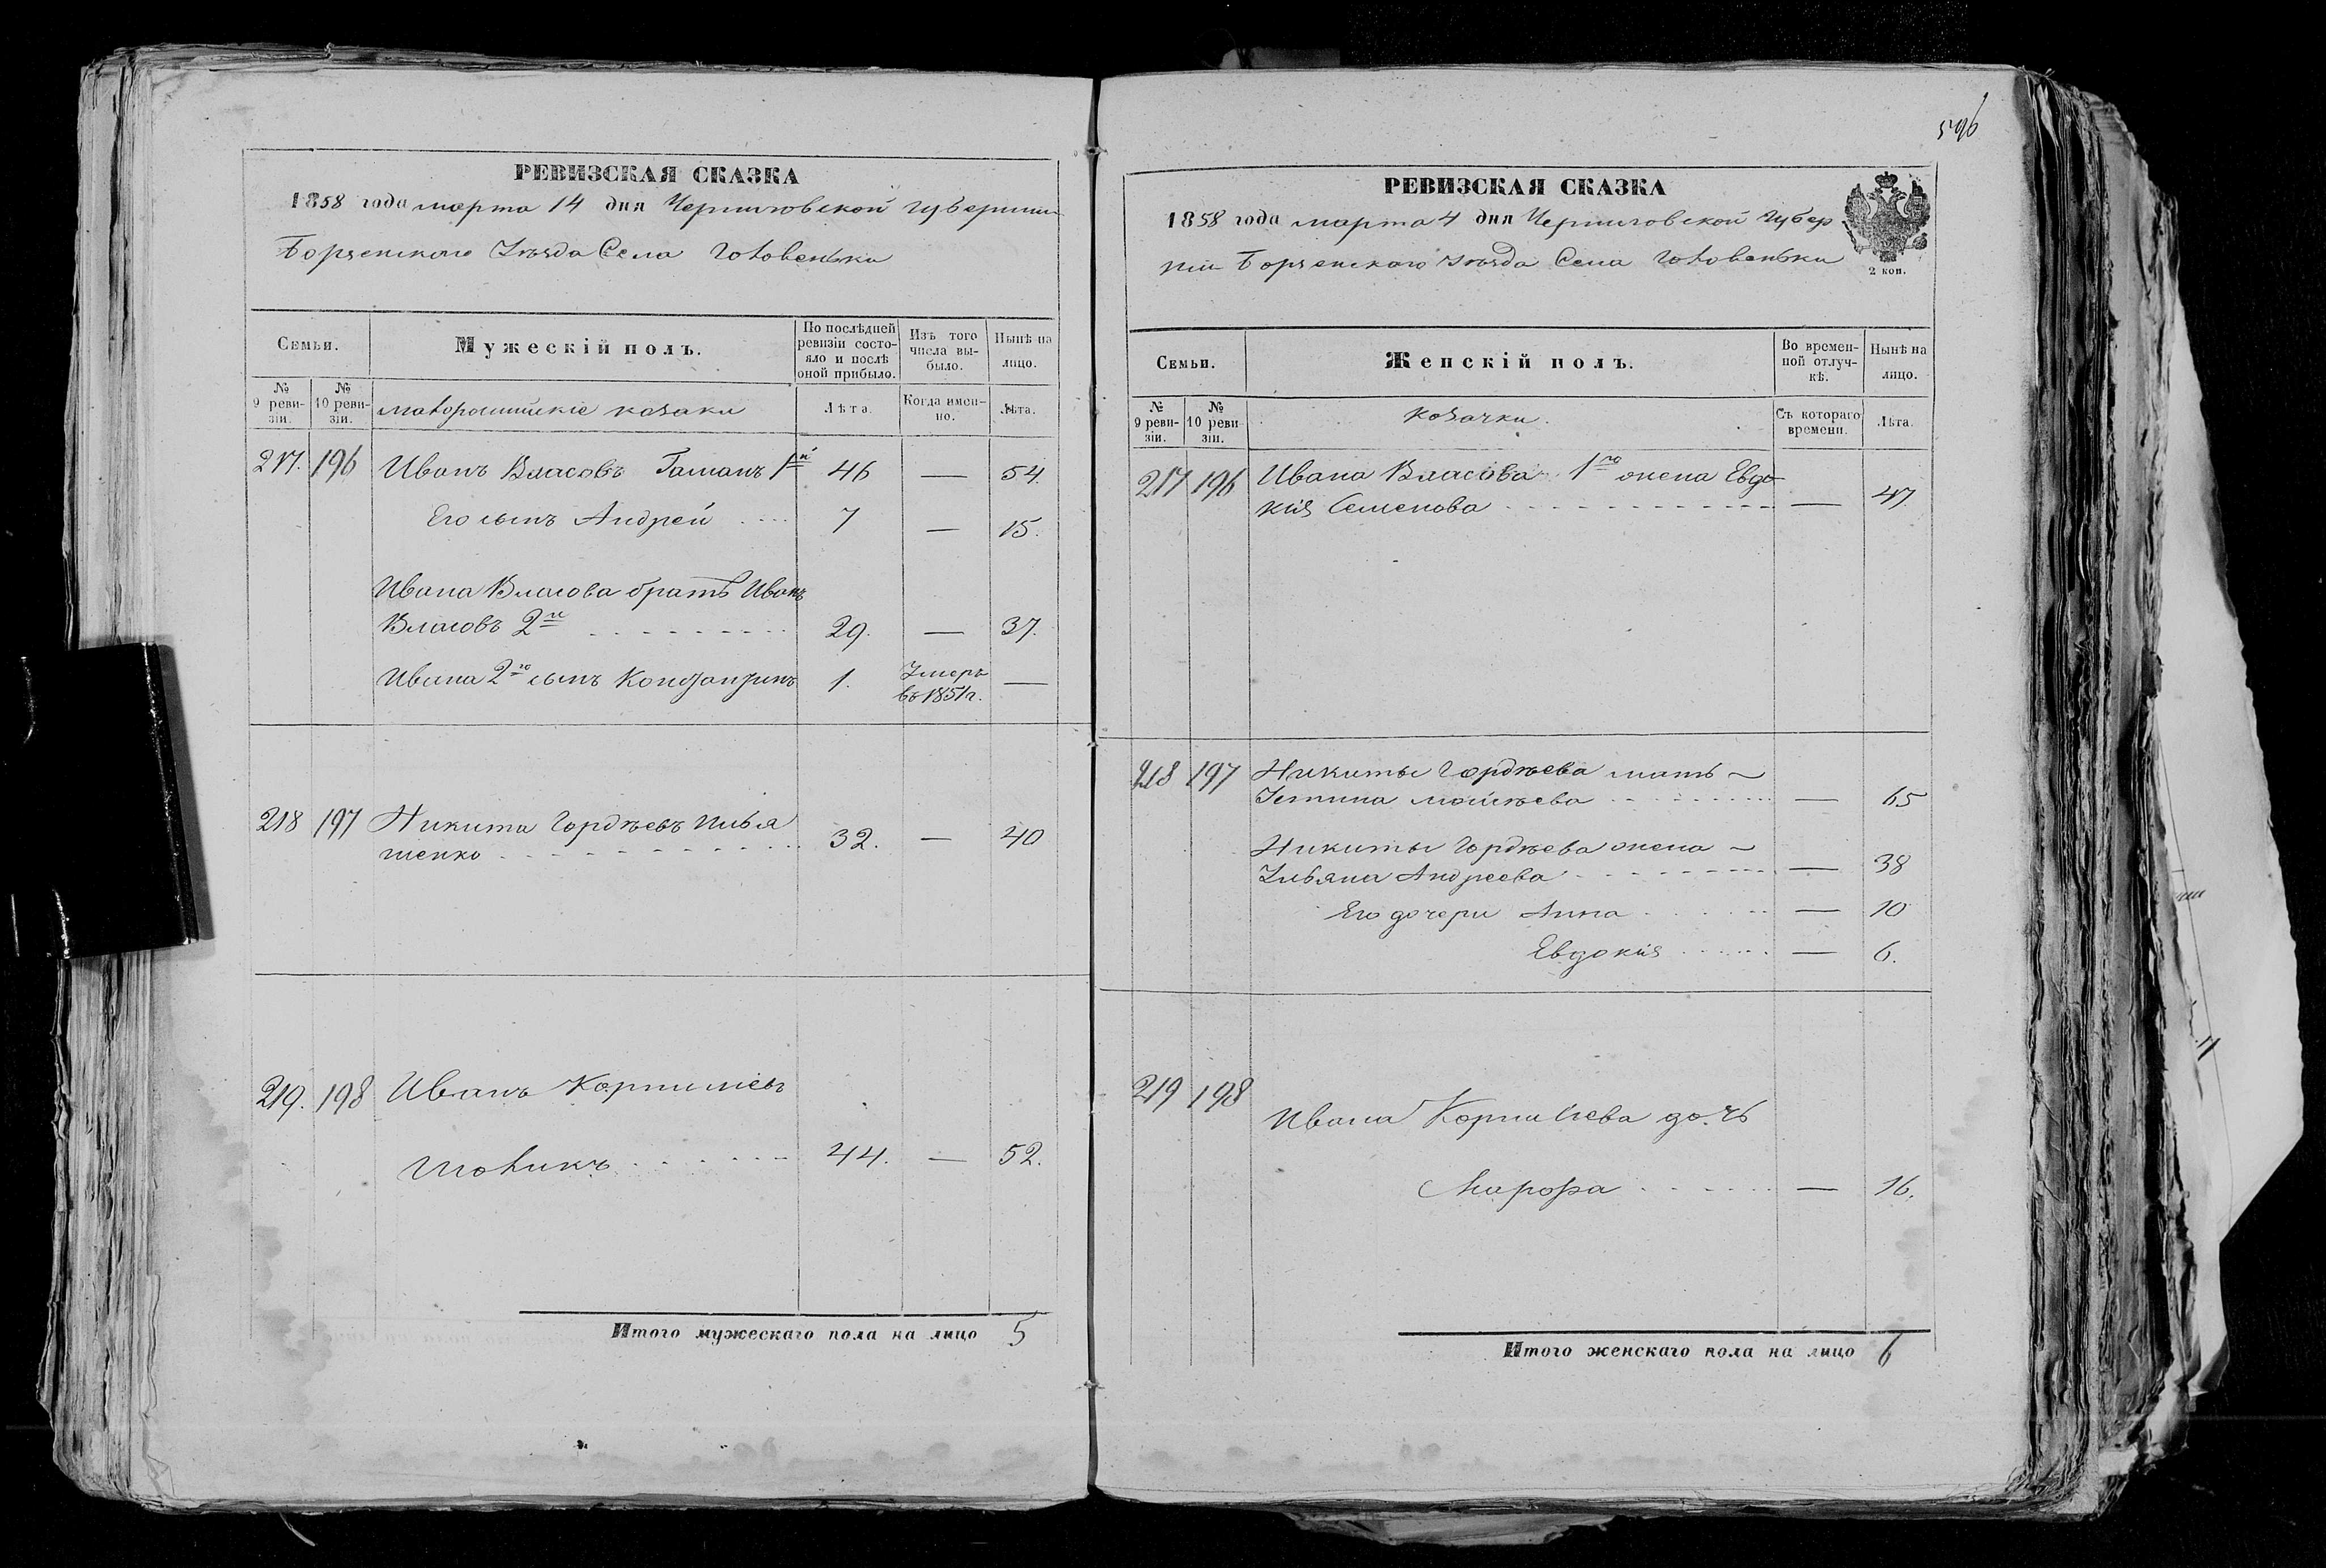 596
РЕВИЗСКАЯ СКАЗКА
1858 года марта 14 дня Черниговской губернии
Борзенского Уѣзда Села Головеньки
Семьи.
Мужескій полъ.
По послѣдней ревизіи состояло и послѣ оной прибыло.
Изъ того числа выбыло.
Нынѣ на лицо.
№ 9 ревизіи.
№ 10 ревизіи.
малороссийскіе козаки
Лѣта.
Когда именно.
Лѣта.
217. 196 Иванъ Власовъ 1й 46 — 54.
Его сынъ Андрей 7 — 15.
Ивана Власова братъ Иванъ
Власовъ 2й 29. — 37.
Ивана 2го сынъ Константинъ 1. Умеръ —
въ 1851 г.
218 197 Никита Гордѣевъ Илья
шенко 32. — 40
219. 198 Иванъ Корниліевъ
44. — 52.
Итого мужескаго пола на лицо 5
РЕВИЗСКАЯ СКАЗКА
1858 года марта 4 дня Черниговской Губер
ніи Борзенскаго Уѣзда Села Головеньки
2 коп.
Семьи.
Женскій полъ.
Во временной отлучкѣ.
Нынѣ на лицо.
№ 9 ревизіи.
№ 10 ревизіи.
козачки.
Съ котораго времени.
Лѣта.
217 196 Ивана Власова 1го жена Евдо
кія Семенова — 47.
218 197 Никиты Гордѣева мать
Устина — 65
Никиты Гордѣева жена
Ульяна Андреева — 38
Его дочери Анна — 10
Евдокія — 6.
219 198
Ивана Корниліева дочь
Марфа — 16.
Итого женскаго пола на лицо 6